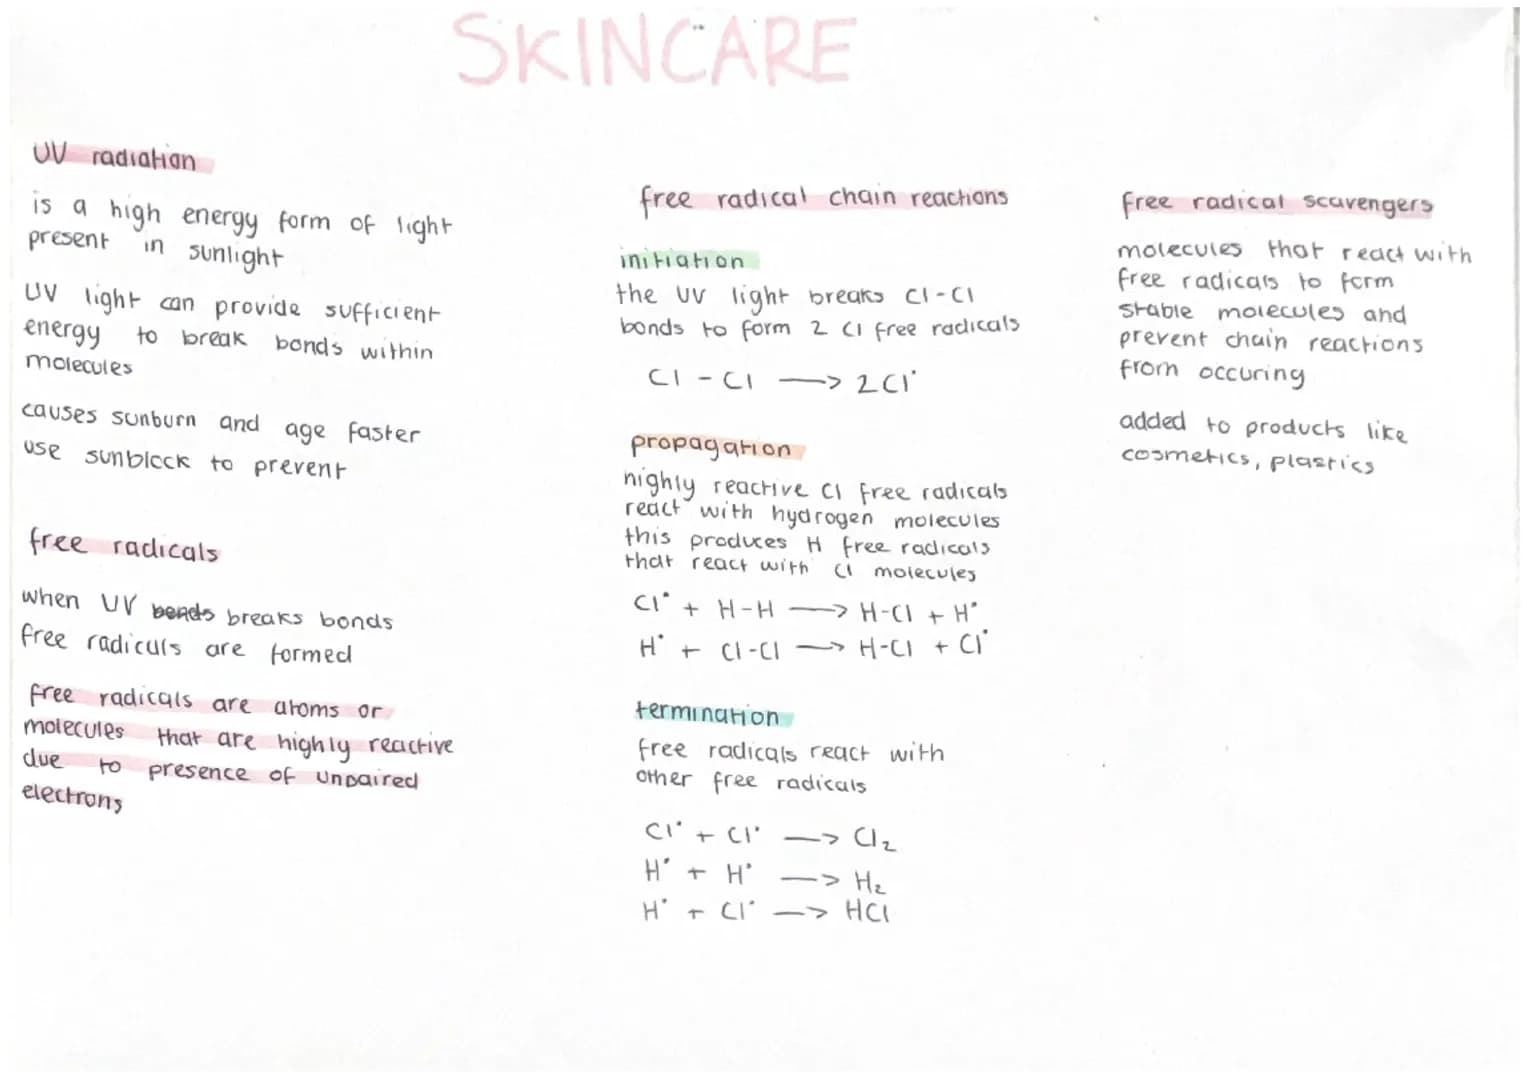 SKINCARE
UV radiation
is a high energy form of light
present in sunlight
UV light can provide sufficient
energy to break bonds within
molecules
causes sunburn and age faster
use sunblock to prevent
free radicals
when UV bends breaks bonds
free radicals are formed
free radicals are atoms or
molecules that are highly reactive
due to presence of unpaired
electrons
free radical chain reactions
initiation
the UV light breaks Cl-Cl
bonds to form 2 Cl free radicals
Cl - Cl —> 2Cl•
propagation
highly reactive Cl free radicals
react with hydrogen molecules
this produces H free radicals
that react with Cl molecules
Cl• + H-H —> H-Cl + H•
H• + Cl-Cl —> H-Cl + Cl•
termination
free radicals react with
other free radicals
Cl• + Cl• —> Cl₂
H• + H• —> H₂
H• + Cl• —> HCl
free radical scavengers
molecules that react with
free radicals to form
stable molecules and
prevent chain reactions
from occuring
added to products like
cosmetics, plastics